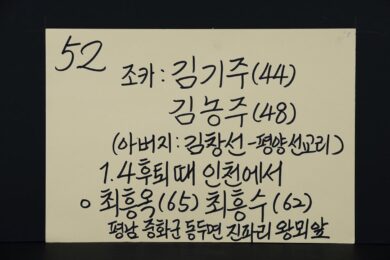 52
조카: 김기주(44)
김농주(48)
(아버지: 김창선-평양선교리)
1.4후퇴때 인천에서
○ 최흥옥(65) 최흥수(62)
평남 중화군 동두면 진파리 왕뫼앞